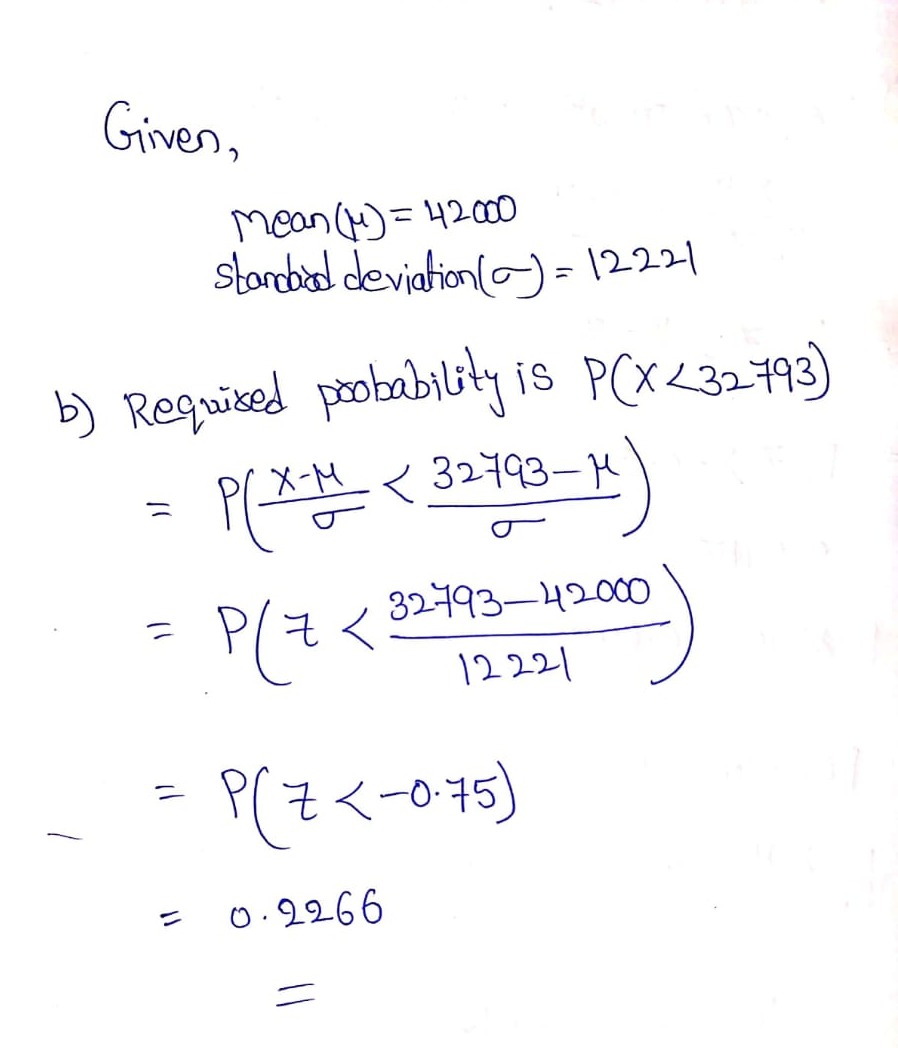 Given,
mean(μ) = 42000
standard deviation(σ) = 12221
b) Required probability is P(X<32793)
= P(X-μ/σ < 32793-μ/σ)
= P(Z < 32793-42000/12221)
= P(Z<-0.75)
= 0.2266
=